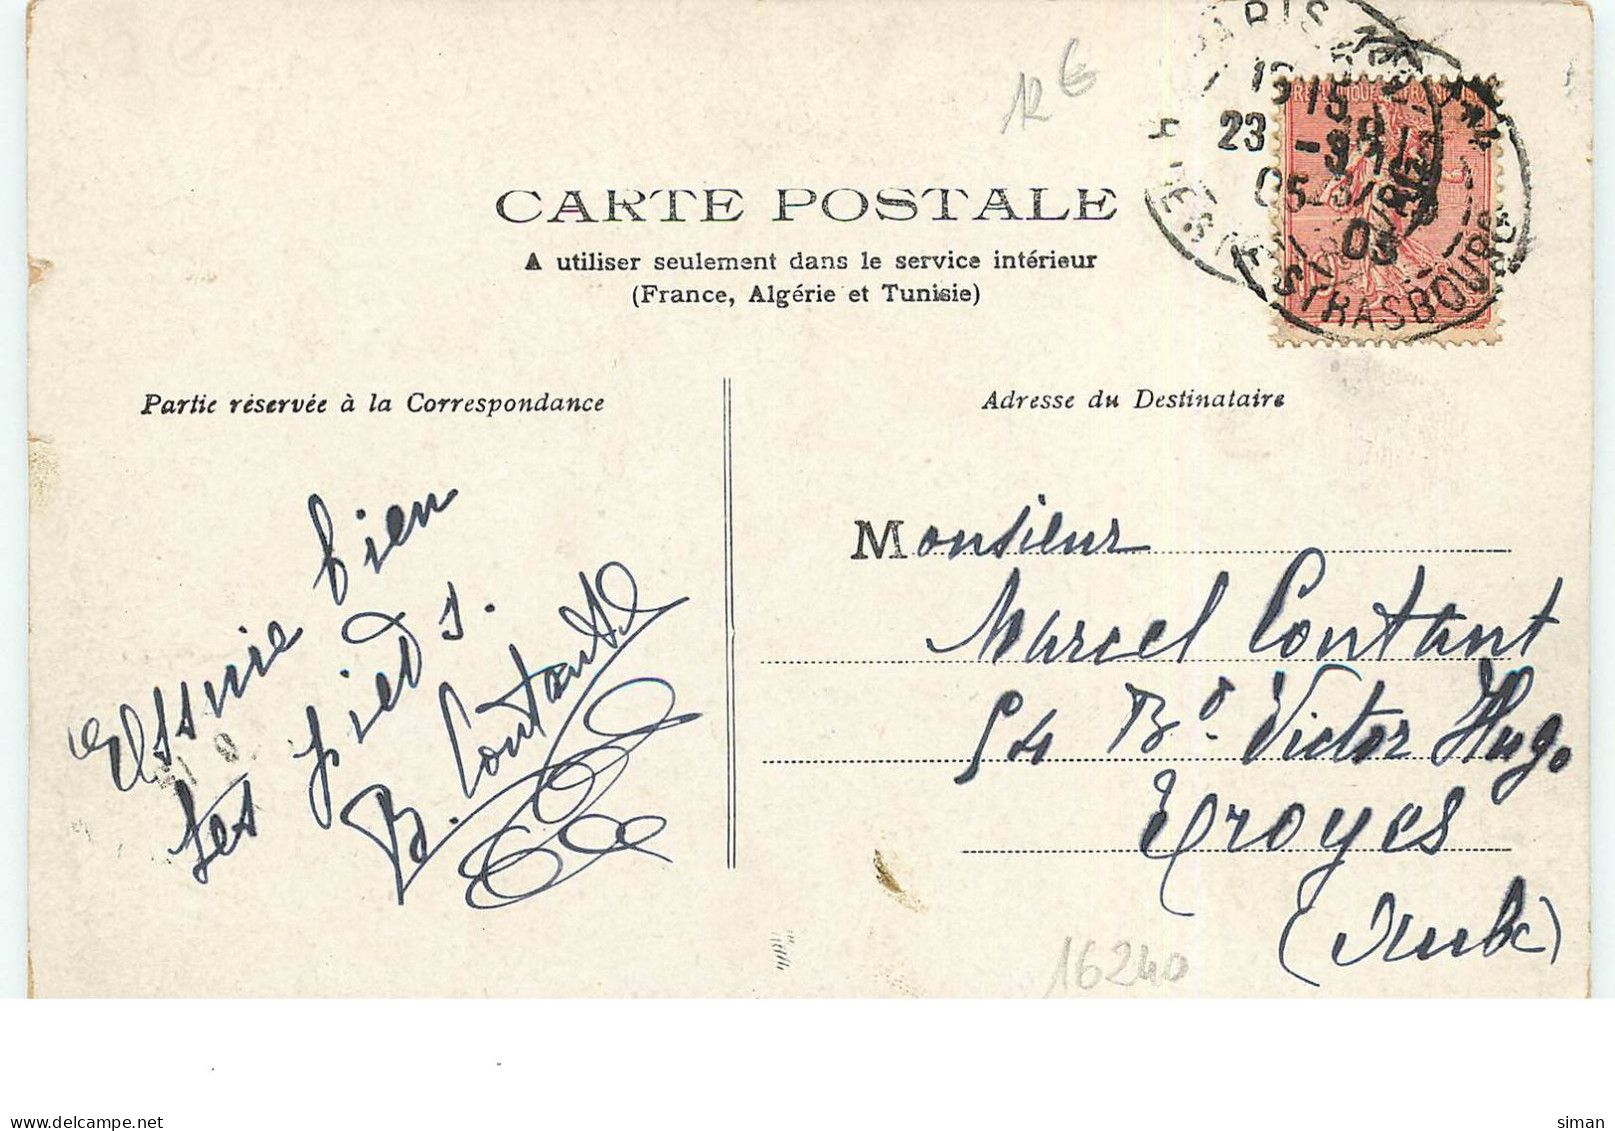 12 €
CARTE POSTALE
A utiliser seulement dans le service intérieur
(France, Algérie et Tunisie)
PARIS
23
05
STRASBOURG
Partie réservée à la Correspondance
Adresse du Destinataire
Essuie bien
tes pieds.
B. Contant
Monsieur
Marcel Contant
54 Bd. Victor Hugo
Troyes
(Aube)
16240
www.delcampe.net
siman